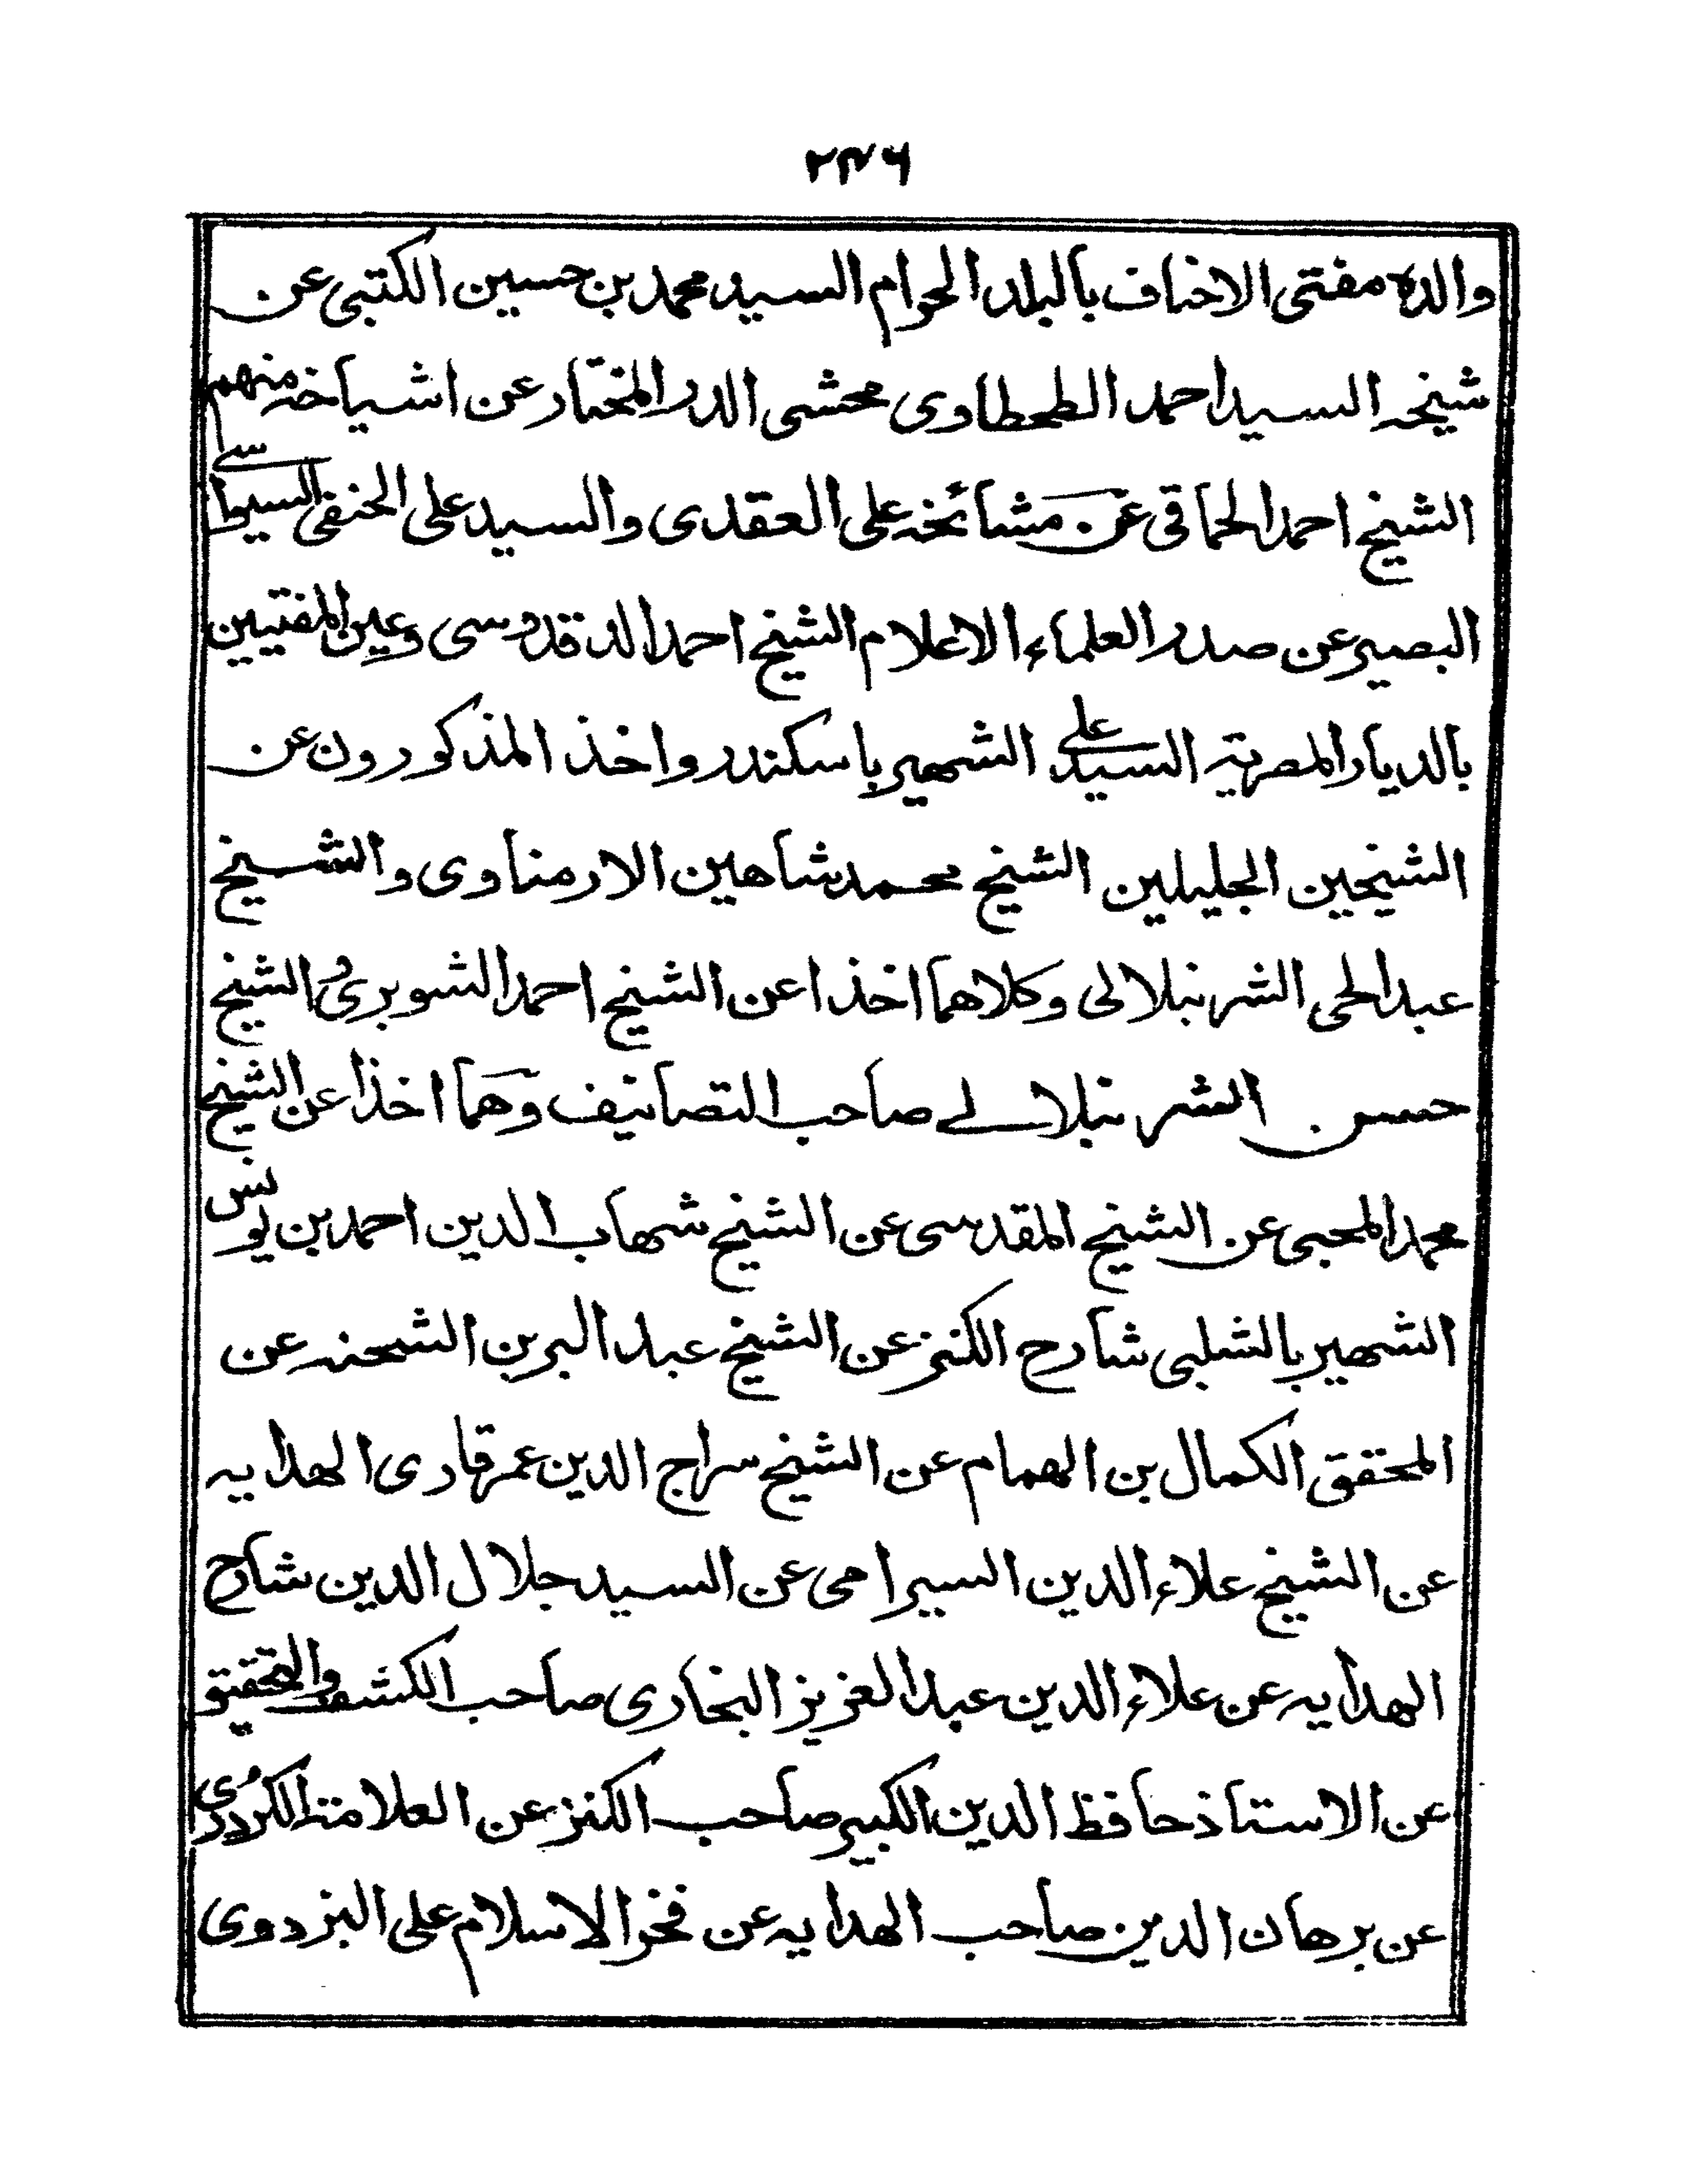 ۲۳۶
والده مفتى الاحناف بالبلد الحرام السيد محمد بن حسين الكتبى عن
شيخه السيد احمد الطحطاوى محشى الدر المختار عن اشياخه منهم
الشيخ احمد الحماقى عن مشائخه على العقدى والسيد على الحنفى السيواسے
البصير عن صدر العلماء الاعلام الشيخ احمد الدقدوسى وعين المفتيين
بالديار المصرية السيد على الشهير باسكندر واخذ المذكورون عن
الشيخين الجليلين الشيخ محمد شاهين الارمناوى والشيخ
عبد الحى الشرنبلالى وكلاهما اخذا عن الشيخ احمد الشوبرى والشيخ
حسن الشرنبلالے صاحب التصانيف وهما اخذا عن الشيخ
محمد المحبى عن الشيخ المقدسى عن الشيخ شهاب الدين احمد بن يونس
الشهير بالشلبى شارح الكنز عن الشيخ عبد البر بن الشحنه عن
المحقق الكمال بن الهمام عن الشيخ سراج الدين عمر قارى الهدايه
عن الشيخ علاء الدين السيرامى عن السيد جلال الدين شارح
الهدايه عن علاء الدين عبد العزيز البخارى صاحب الكشف والتحقيق
عن الاستاذ حافظ الدين الكبير صاحب الكنز عن العلامة الكردرى
عن برهان الدين صاحب الهدايه عن فخر الاسلام على البزدوى